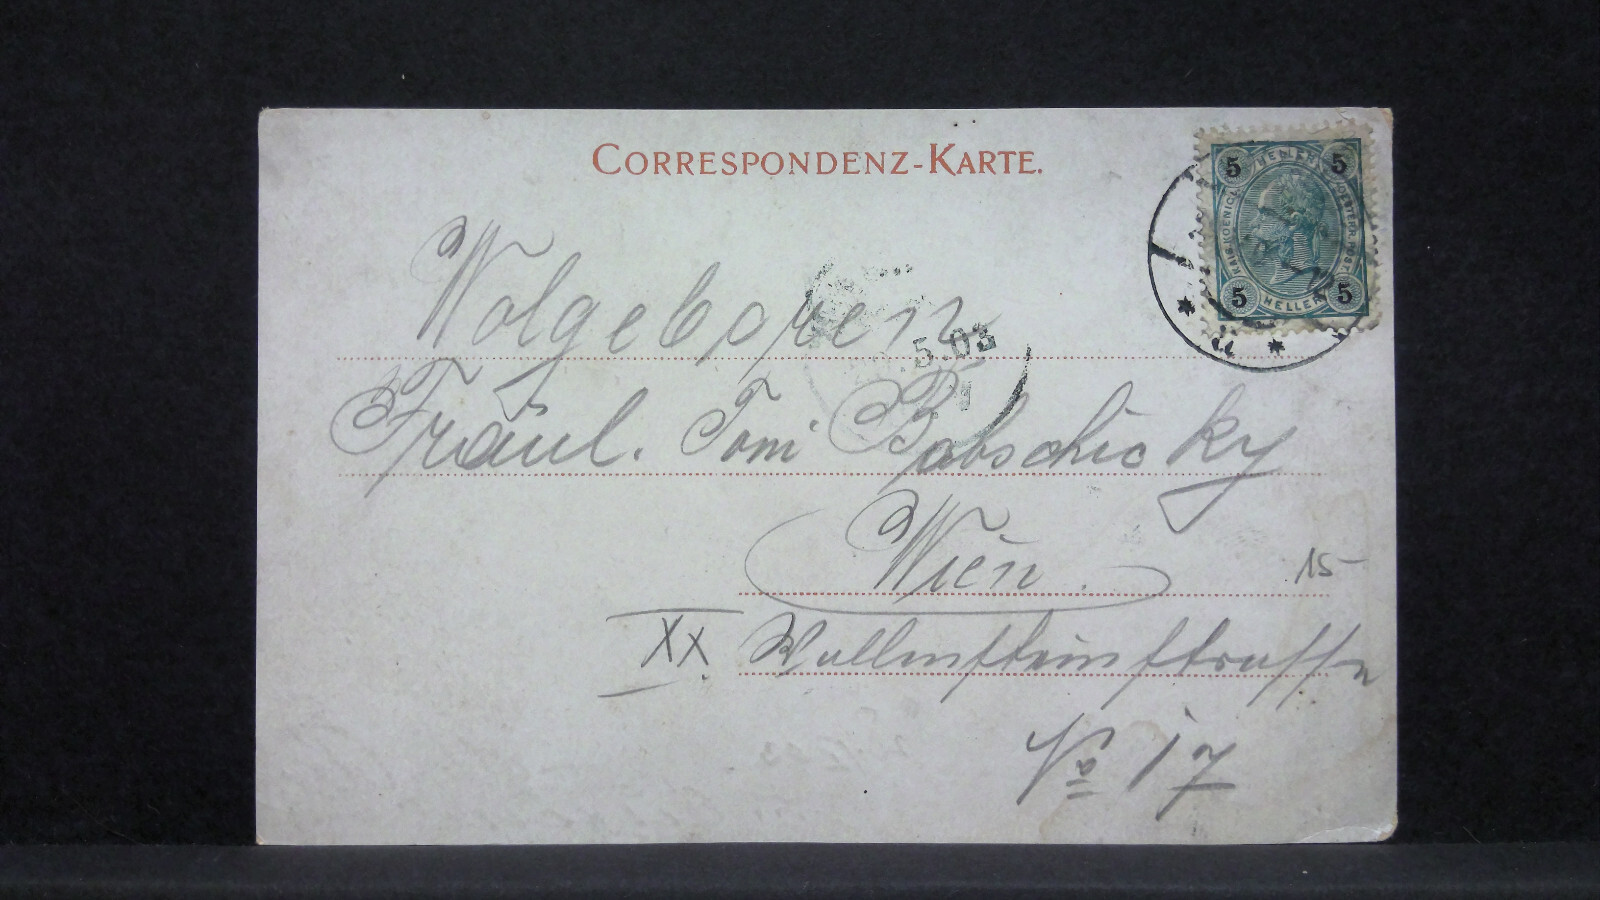 CORRESPONDENZ-KARTE.
5 HELLER 5
KAIS. KOENIGL. OESTERR. POST.
5 HELLER 5
Wolgeboren
5.03
Fräul. Toni Babschicky
Wien.
15-
XX. Wallensteinstrasse
No 17